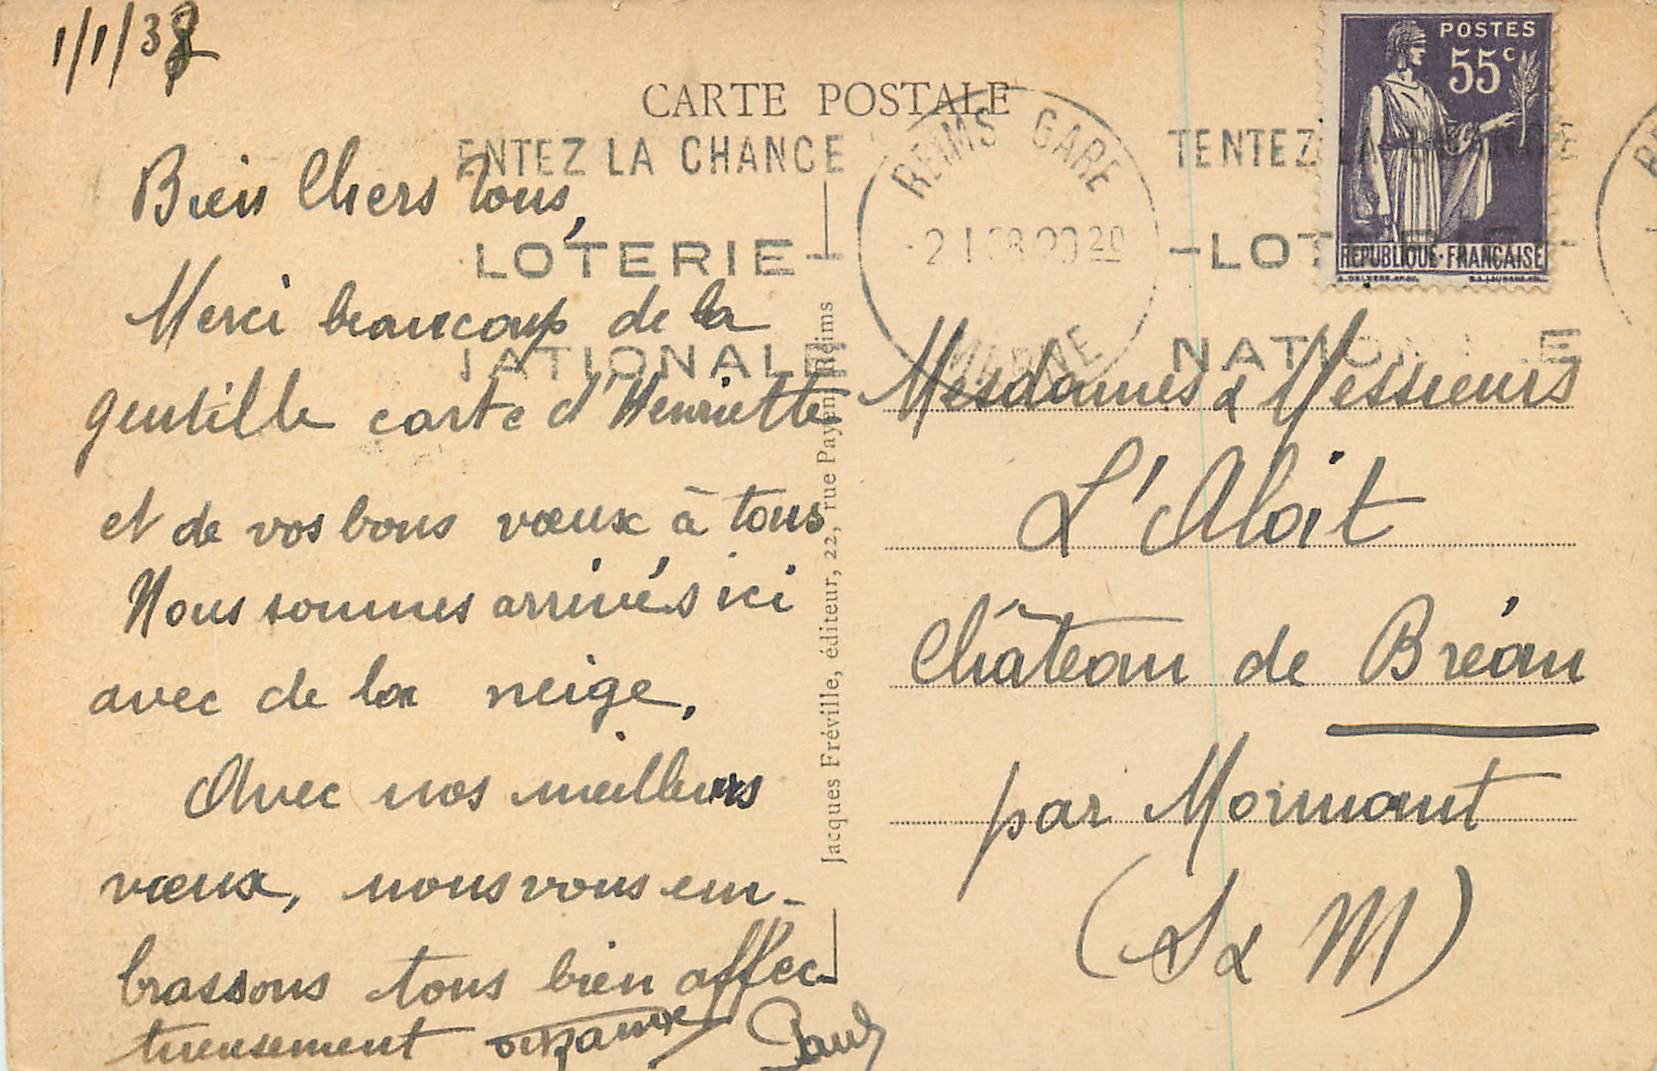 1/1/38
CARTE POSTALE
ENTEZ LA CHANCE
LOTERIE
NATIONALE
REIMS GARE
MARNE
TENTEZ
-LOT
NATIO LE
POSTES
55c
REPUBLIQUE·FRANÇAISE
Bien Chers Tous,
Merci beaucoup de la
gentille carte d'Henriette
et de vos bons vœux à tous
Nous sommes arrivés ici
avec de la neige,
Avec nos meilleurs
vœux, nous vous em-
brassons tous bien affec-
tueusement Paul
Jacques Fréville, éditeur, 22, rue Payen, Reims
Mesdames & Messieurs
L'Aloit
Château de Bréau
par Mormant
(S & M)